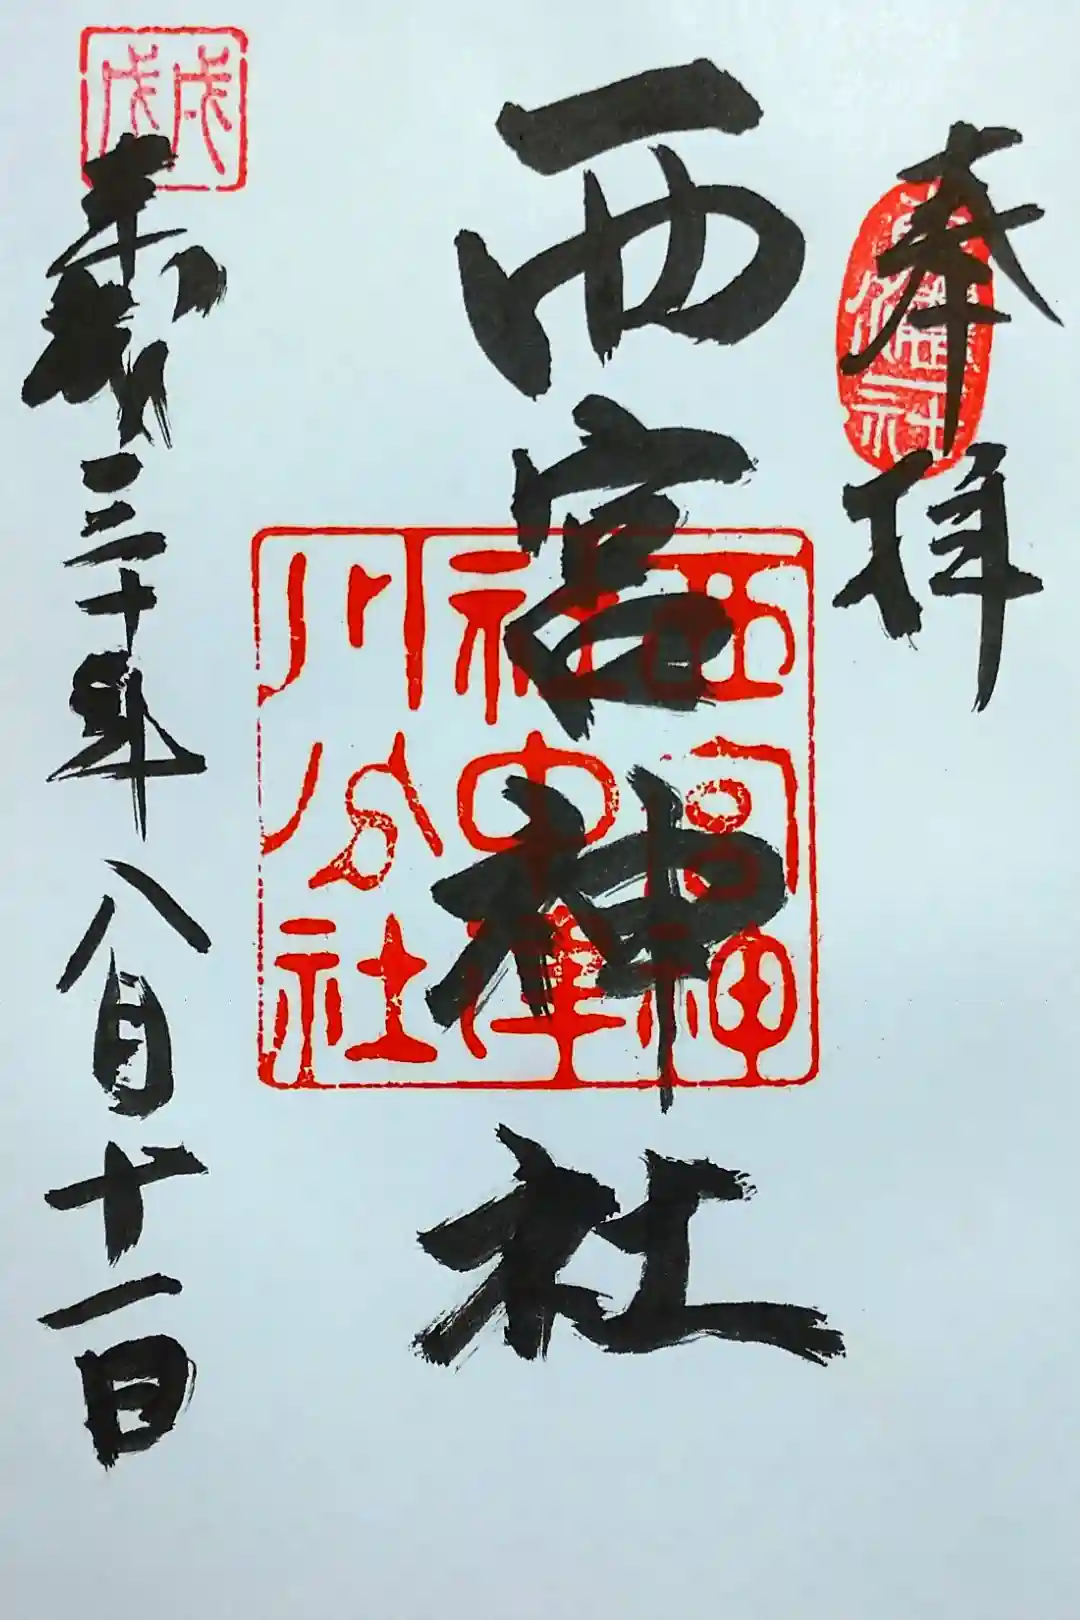 奉拝
西宮神社
西宮神
社中津
川分社
三十年八月十一日
戊戌